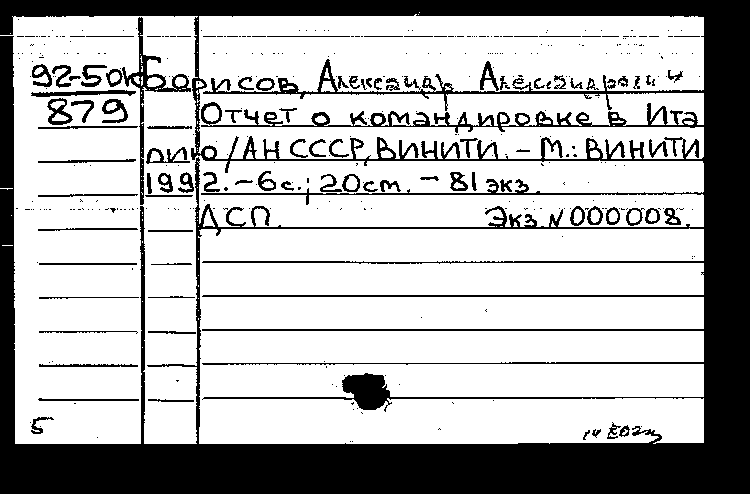 92-5дк Борисов, Александр Александрович
879 Отчет о командировке в Ита
лию / АН СССР, ВИНИТИ. - М.: ВИНИТИ,
1992. - 6 с.; 20 см. - 81 экз.
ДСП. Экз. N 000008.
5